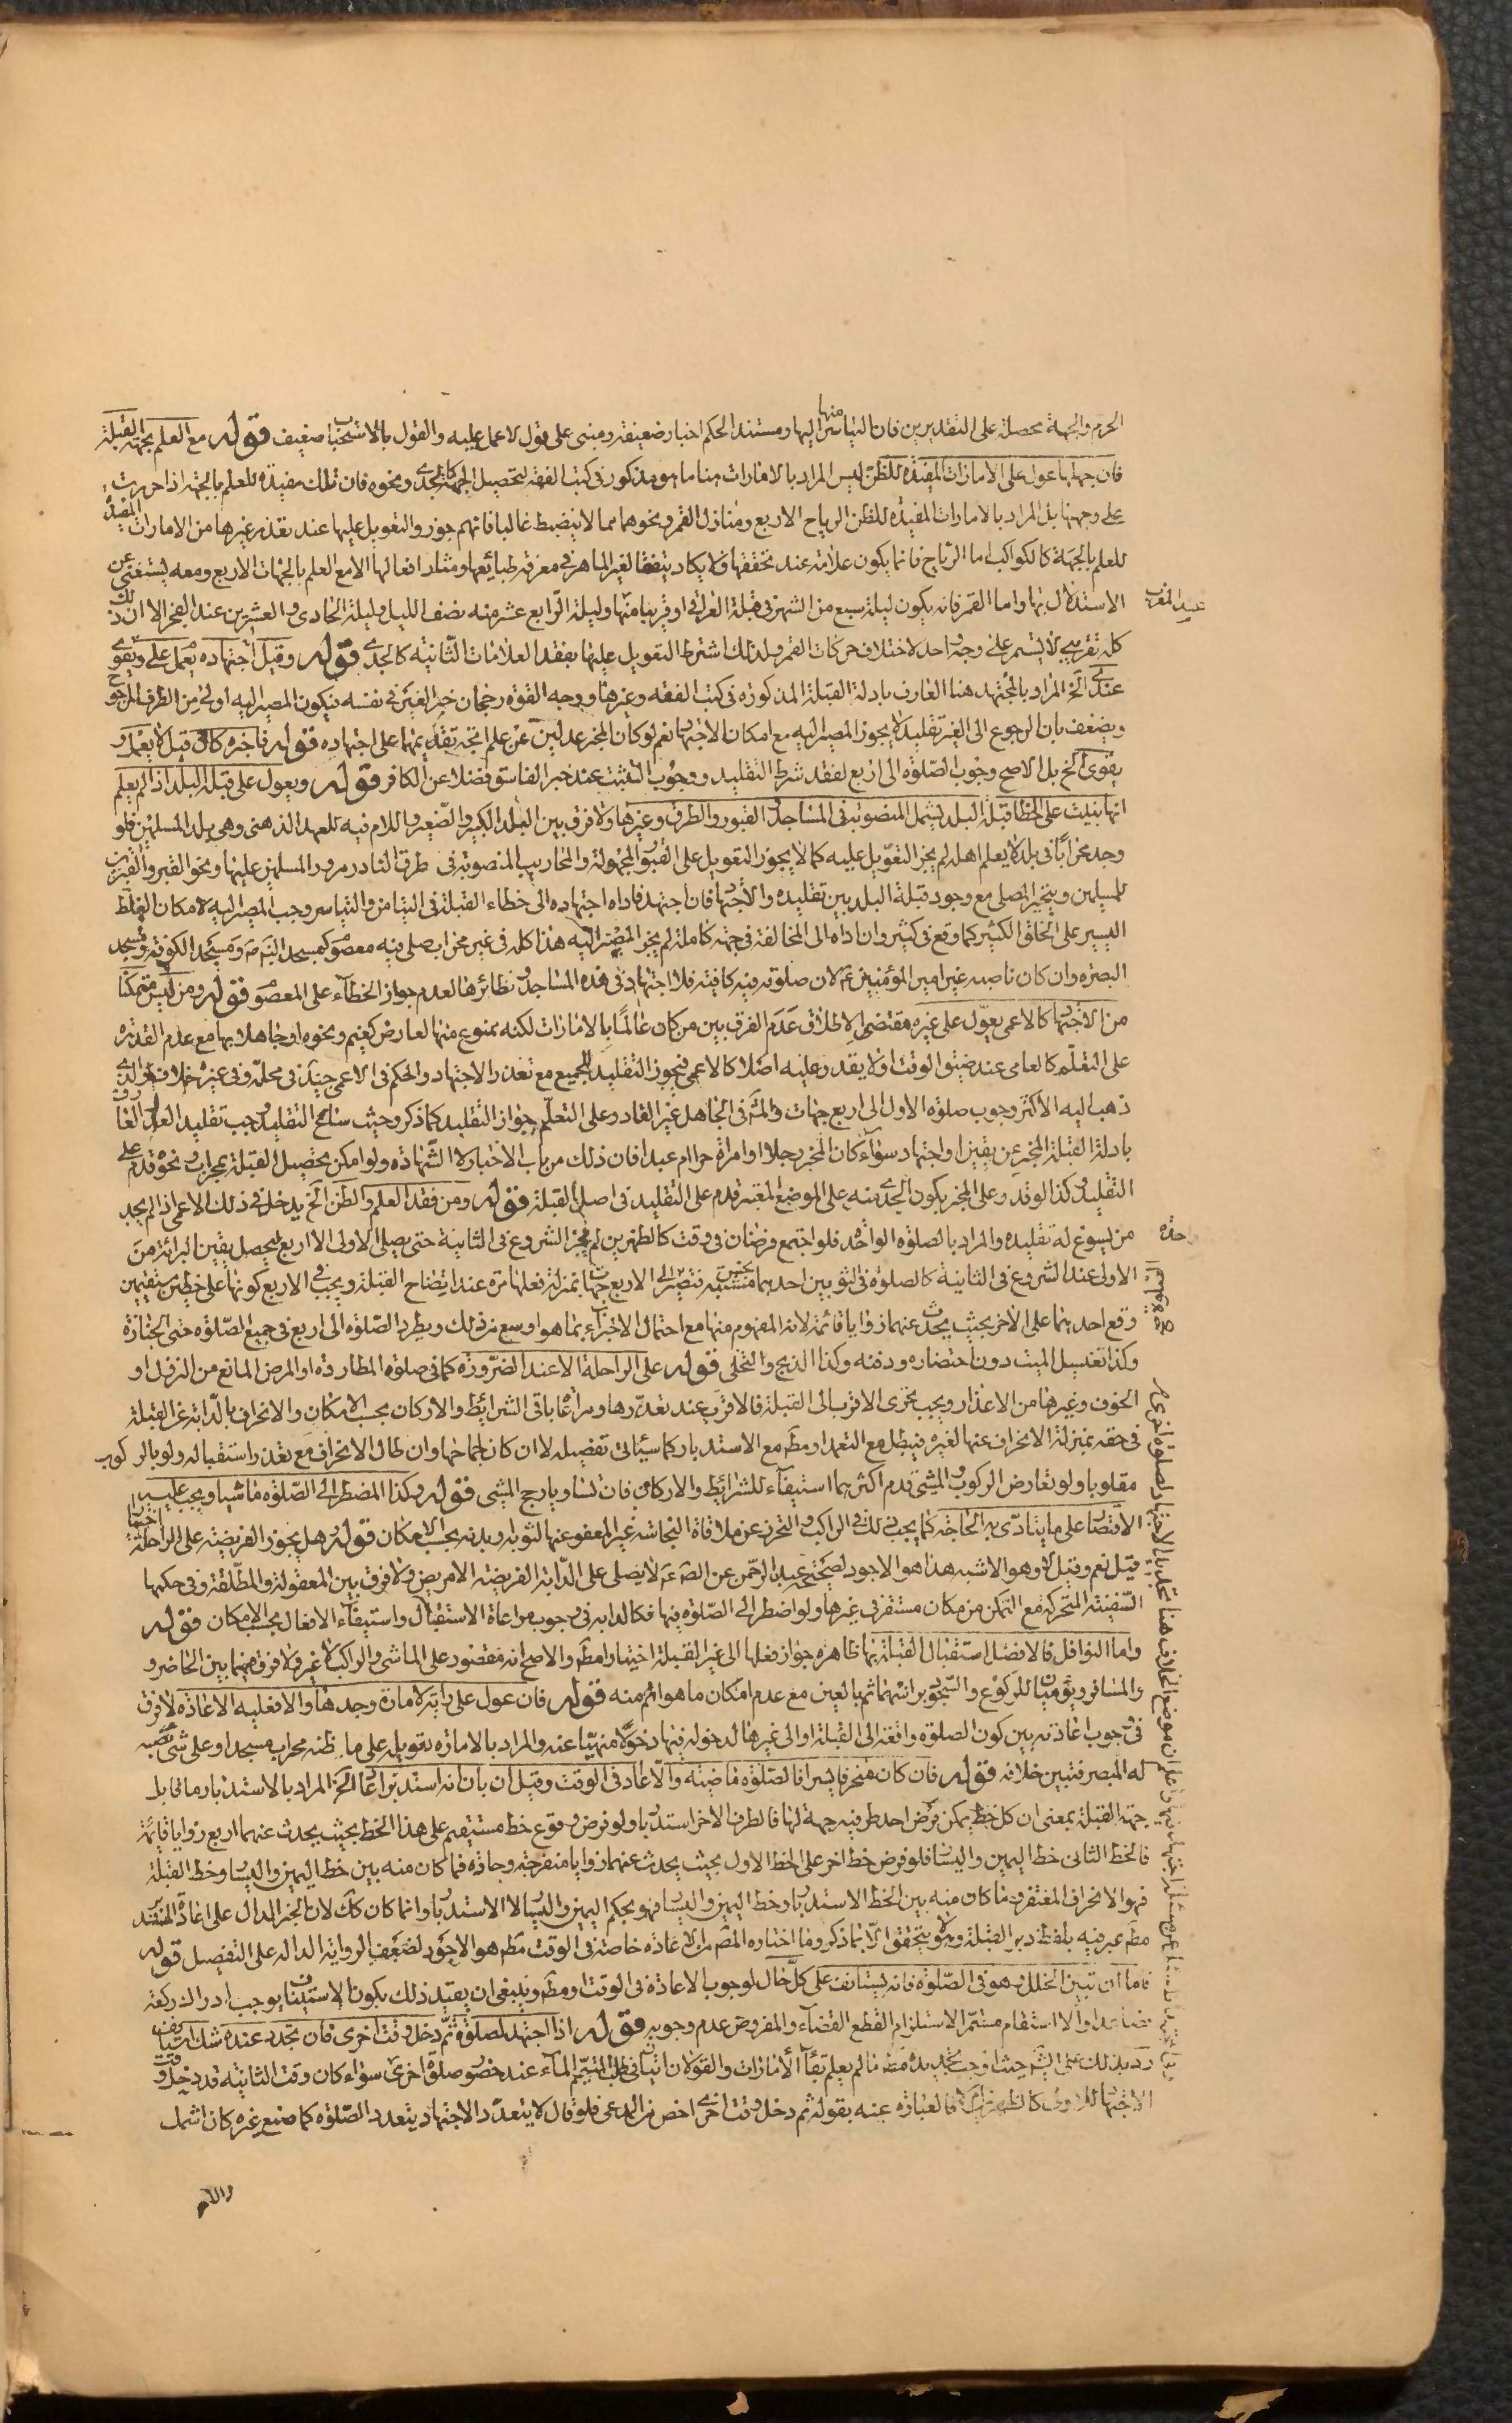 الحرم والجهة محصلة على التقديرين فان التياسر منها اليها ومستند الحكم اخبار ضعيفة ومبنى على قول لا عمل عليه والقول بالاستحباب ضعيف قوله مع العلم بجهة القبلة
فان جهلها عول على الامارات المفيدة للظن ليس المراد بالامارات هنا ما هو مذكور فى كتب الفقه لتحصيل الجهة كالجدى ونحوه فان تلك مفيدة للعلم بالجهة اذا حررت
على وجهها بل المراد بالامارات المفيدة للظن الرياح الاربع ومنازل القمر ونحوهما مما لا ينضبط غالبا فانهم جوزوا التعويل عليها عند تعذر غيرها من الامارات المفيدة
للعلم بالجهة كالكواكب اما الرياح فانما يكون علامة عند تحققها ولا يكاد يتفق لغير الماهر فى معرفة طبائعها ومثار افعالها الا مع العلم بالجهات الاربع ومعه يستغنى عن
الاستدلال بها واما القمر فانه يكون ليلة سبع من الشهر فى قبلة العراقى او قريبا منها وليلة الرابع عشر منه نصف الليل وليلة الحادى والعشرين عند الفجر الا ان ذلك
عند المغرب
كله تقريبى لا يستمر على وجه واحد لاختلاف حركات القمر ولذلك اشترط التعويل عليها بفقد العلامات الثابتة كالجدى قوله وقيل اجتهاده يعمل عليه ويقوى
عندى الخ المراد بالمجتهد هنا العارف بادلة القبلة المذكورة فى كتب الفقه وغيرها ووجه القوة رجحان خبر الغير فى نفسه فيكون المصير اليه اولى من الطرف المرجوح
ويضعف بان الرجوع الى الغير تقليد لا يجوز المصير اليه مع امكان الاجتهاد نعم لو كان المخبر عدلين عن علم اتجه تقديمهما على اجتهاده قوله فاخبره كافر قيل لا يعمل و
يقوى الخ بل الاصح وجوب الصلوة الى اربع لفقد شرط التقليد ووجوب التثبت عند خبر الفاسق فضلا عن الكافر قوله ويعول على قبلة البلد اذا لم يعلم
انها بنيت على الخطا قبلة البلد يشمل المنصوبة فى المساجد والقبور والطرق وغيرها ولا فرق بين البلد الكبير والصغير واللام فيه للعهد الذهنى وهى بلد المسلمين فلو
وجد محرابا فى بلد لا يعلم اهله لم يجز التعويل عليه كما لا يجوز التعويل على القبور المجهولة والمحاريب المنصوبة فى طرق النادر مرور المسلمين عليها ونحو القبر والقبرين
للمسلمين ويتخير المصلى مع وجود قبلة البلد بين تقليده والاجتهاد فان اجتهد فاداه اجتهاده الى خطاء القبلة فى التيامن والتياسر وجب المصير اليه لامكان الغلط
اليسير على الخلق الكثير كما وقع فى كثير وان اداه الى المخالفة فى جهة كاملة لم يجز المصير اليه هذا كله فى غير محراب صلى فيه معصوم كمسجد النبى ص ومسجد الكوفة ومسجد
البصرة وان كان ناصبه غير امير المؤمنين ع لان صلوته فيه كافية فلا اجتهاد فى هذه المساجد ونظائرها لعدم جواز الخطاء على المعصوم قوله ومن ليس متمكنا
من الاجتهاد كالاعمى يعول على غيره مقتضى الاطلاق عدم الفرق بين من كان عالما بالامارات لكنه ممنوع منها لعارض كغيم ونحوه او جاهلا بها مع عدم القدرة
على التعلم كالعامى عند ضيق الوقت او لا يقدر عليه اصلا كالاعمى فيجوز التقليد للجميع مع تعذر الاجتهاد والحكم فى الاعمى جيد فى محله وفى غيره خلاف والذى
ذهب اليه الاكثر وجوب صلوة الاول الى اربع جهات والمش فى الجاهل غير القادر على التعلم جواز التقليد كما ذكر وحيث ساغ التقليد وجب تقليد العدل العارف
بادلة القبلة المخبر عن يقين او اجتهاد سواء كان المخبر رجلا او امراة حرا ام عبدا فان ذلك من باب الاخبار لا الشهادة ولو امكن تحصيل القبلة بمحراب ونحوه قدم على
التقليد وكذا لو قدر وعلى المخبر بكون الجدى منه على الموضع المعتبر قدم على التقليد فى اصل القبلة قوله ومن فقد العلم والظن الخ يدخل فى ذلك الاعمى اذا لم يجد
من يسوغ له تقليده والمراد بالصلوة الواحدة فلو اجتمع فرضان فى وقت كالظهرين لم يجز الشروع فى الثانية حتى يصلى الاولى الى اربع ليحصل يقين البرائة من
واحدة
الاولى عند الشروع فى الثانية كالصلوة فى الثوبين احدهما نجس مشتبه فتصير الى الاربع جهات بمنزلة فعلها مرة عند ايضاح القبلة ويجب فى الاربع كونها على خطين مستقيمين
وقع احدهما على الاخر بحيث يحدث عنهما زوايا قائمة لانه المفهوم منها مع احتمال الاجتزاء بما هو اوسع من ذلك ويطرد الصلوة الى اربع فى جميع الصلوة حتى الجنازة
وكذا تغسيل الميت دون احتضاره ودفنه وكذا الذبح والتخلى قوله على الراحلة الا عند الضرورة كما فى صلوة المطاردة او المرض المانع من النزول او
الخوف وغيرها من الاعذار ويجب تحرى الاقرب الى القبلة فالاقرب عند تعذرها ومراعاة باقى الشرائط والاركان بحسب الامكان والانحراف بالدابة عن القبلة
فى حقه بمنزلة الانحراف عنها لغيره فيبطل مع التعمد او مطم مع الاستدبار كما سيأتى تفصيله لا ان كان لجماحها وان طال الانحراف مع تعذر استقباله ولو بالركوب
مقلوبا ولو تعارض الركوب والمشى قدم اكثرهما استيفاء للشرائط والاركان فان تساويا رجح المشى قوله وكذا المضطر الى الصلوة ماشيا ويجب عليه
الاقتصار على ما يتادى به الحاجة كما يجب ذلك فى الراكب والتحرز عن ملاقاة النجاسة غير المعفو عنها لثوبه وبدنه بحسب الامكان قوله وهل يجوز الفريضة على الراحلة اختيارا
قيل نعم وقيل لا وهو الاشبه هذا هو الاجود لصحيحة عبد الرحمن عن الصادق ع لا يصلى على الدابة الفريضة الا مريض ولا فرق بين المعقولة والمطلقة وفى حكمها
السفينة المتحركة مع التمكن من مكان مستقر فى غيرها ولو اضطر الى الصلوة فيها فكالدابة فى وجوب مراعاة الاستقبال واستيفاء الافعال بحسب الامكان قوله
واما النوافل فالافضل استقبال القبلة بها ظاهره جواز فعلها الى غير القبلة اختيارا مطم والاصح انه مقصور على الماشى والراكب لا غير ولا فرق فيهما بين الحاضر و
والمسافر ويؤميان للركوع والسجود براسهما ثم بالعين مع عدم امكان ما هو اتم منه قوله فان عول على رايه لامارة وجدها والا فعليه الاعادة لا فرق
فى وجوب اعادته بين كون الصلوة واقعة الى القبلة او الى غيرها لدخوله فيها دخولا منهيا عنه والمراد بالامارة تعويله على ما ظنه محراب مسجد او على شى نصبه
له المبصر فتبين خلافه قوله فان كان منحرفا يسيرا فالصلوة ماضية والا اعاد فى الوقت وقيل ان بان انه استدبر اعاد الخ المراد بالاستدبار ما قابل
جهة القبلة بمعنى ان كل خط يمكن فرض احد طرفيه جهة لها فالطرف الاخر استدبار ولو فرض وقوع خط مستقيم على هذا الخط بحيث يحدث عنهما اربع زوايا قائمة
فالخط الثانى خط اليمين واليسار فلو فرض خط اخر على الخط الاول بحيث يحدث عنهما زوايا منفرجة وحادة فما كان منه بين خط اليمين واليسار وخط القبلة
فهو الانحراف المغتفر وما كان منه بين الخط الاستدبار وخط اليمين واليسار فهو بحكم اليمين واليسار لا الاستدبار وانما كان كك لان الخبر الدال على اعادة المستدبر
مطم عبر فيه بلفظ دبر القبلة وهو لا يتحقق الا بما ذكر وما اختاره المصم من الاعادة خاصة فى الوقت مطم هو الاجود لضعف الرواية الدالة على التفصيل قوله
فاما ان تبين الخلل وهو فى الصلوة فانه يستانف على كل حال لوجوب الاعادة فى الوقت او مطم وينبغى ان يقيد ذلك بكون الاستيناف يوجب ادراك ركعة
فصاعدا والا استقام مستمرا لاستلزام القطع القضاء والمفروض عدم وجوبه قوله اذا اجتهد لصلوة ثم دخل وقت اخرى فان تجدد عنده شك استانف
رد بذلك على الشيخ حيث اوجب تجديده مطم ما لم يعلم بقاء الامارات والقولان اتيان فى طلب المتيمم الماء عند حضور صلوة اخرى سواء كان وقت الثانية قد دخل وقت
الاجتهاد للاولى كالظهرين ام لا فالعبارة عنه بقوله ثم دخل وقت اخرى اخص من المدعى فلو قال لا يتعدد الاجتهاد بتعدد الصلوة كما صنع غيره كان اشمل
والام